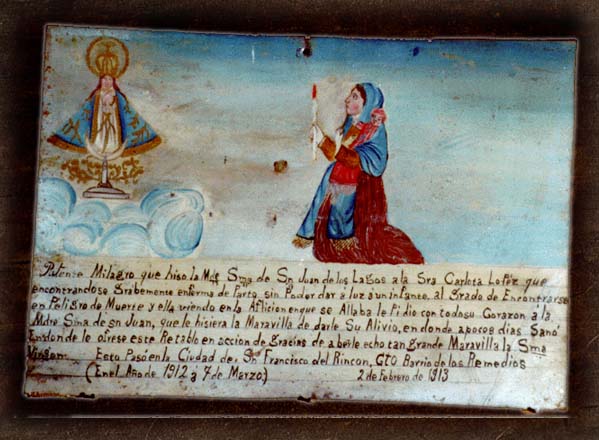 Patente Milagro que hiso la Mdre Sma de Sn Juan de los Lagos a la Sra Carlota Lopez que
encontrandose Grabemente enferma de Parto sin Poder dar a luz a un infante, al grado de Encontrarse
en Peligro de Muerte y ella viendo en la Aflicion en que se Allaba le Pidio con todo su Corazon á la
Mdre Sma de Sn Juan, que le hisiera la Maravilla de darle Su Alivio, en donde a pocos dias Sanó
En don de le ofrese este Retablo en accion de gracias de aberle echo tan grande Maravilla la Sma
Virgen. Esto Pasó en la Ciudad de Sn Francisco del Rincon, GTO Barrio de los Remedios
(En el Año de 1912 á 7 de Marzo) 2 de Febrero de 1913